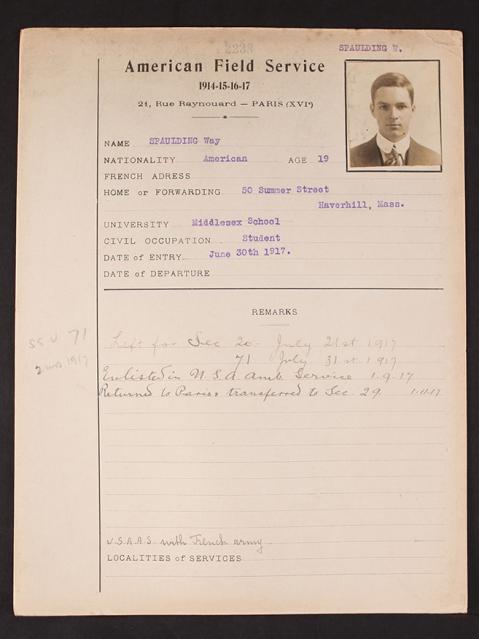 2238
SPAULDING W.
American Field Service
1914-15-16-17
21, Rue Raynouard — PARIS (XVIe)
NAME SPAULDING Way
NATIONALITY American AGE 19
FRENCH ADRESS
HOME or FORWARDING 50 Summer Street
Haverhill, Mass.
UNIVERSITY Middlesex School
CIVIL OCCUPATION Student
DATE of ENTRY June 30th 1917.
DATE of DEPARTURE
REMARKS
SSU 71
Left for Sec 20 July 21st 1917
71 July 31st 1917
Enlisted in U.S.A. Amb. Service 1-9-17
Returned to Paris & transferred to Sec. 29 1-11-17
U.S.A.A.S. with French army
LOCALITIES of SERVICES